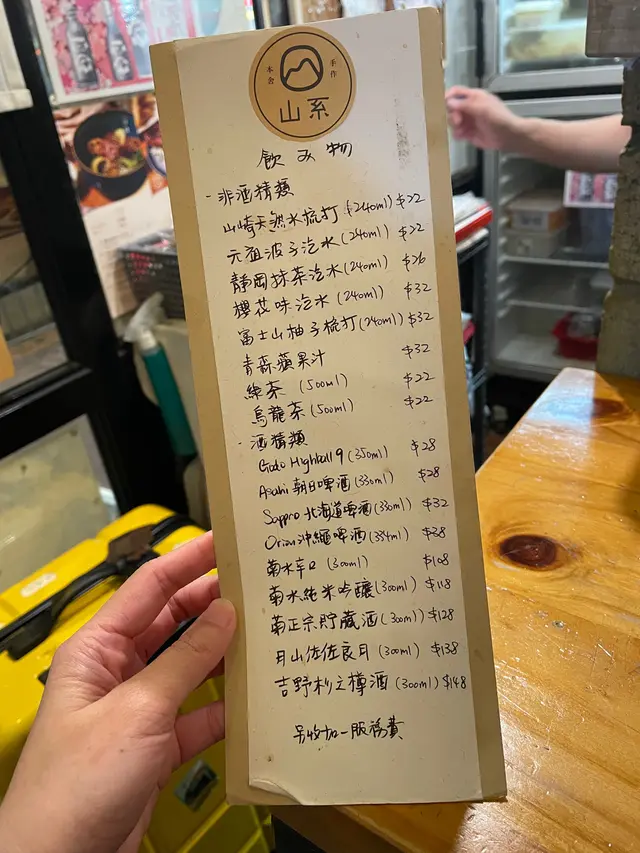 本舍
手作
山系
飲み物
·非酒精類
山崎天然水梳打 (240ml) $22
元祖波子汽水 (240ml) $22
靜岡抹茶汽水 (240ml) $26
櫻花味汽水 (240ml) $32
富士山柚子梳打 (240ml) $32
青森蘋果汁 $32
綠茶 (500ml) $22
烏龍茶 (500ml) $22
·酒精類
Godo Highball 9 (350ml) $28
Asahi 朝日啤酒 (330ml) $28
Sapporo 北海道啤酒 (330ml) $32
Orion 沖繩啤酒 (334ml) $38
菊水辛口 (300ml) $108
菊水純米吟釀 (300ml) $118
菊正宗貯藏酒 (300ml) $128
月山佐佐良月 (300ml) $138
吉野杉之樽酒 (300ml) $148
另收加一服務費